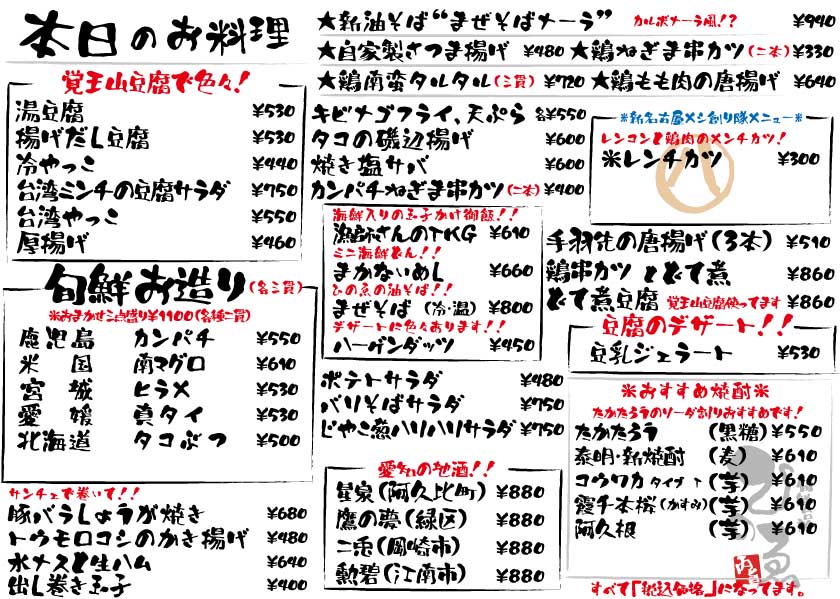 本日のお料理
★新油そば“まぜそばナーラ” カルボナーラ風!? ¥940
★自家製さつま揚げ ¥480 ★鶏ねぎま串カツ(二本) ¥330
★鶏南蛮タルタル(三貫) ¥720 ★鶏もも肉の唐揚げ ¥640
覚王山豆腐で色々!
湯豆腐 ¥530
揚げだし豆腐 ¥530
冷やっこ ¥440
台湾ミンチの豆腐サラダ ¥750
台湾やっこ ¥550
厚揚げ ¥460
旬鮮お造り(各三貫)
※おまかせ三点盛り¥1100(各種二貫)
鹿児島 カンパチ ¥550
米国 南マグロ ¥610
宮城 ヒラメ ¥530
愛媛 真タイ ¥530
北海道 タコぶつ ¥500
サンチェで巻いて!!
豚バラしょうが焼き ¥680
トウモロコシのかき揚げ ¥480
水ナスと生ハム ¥640
出し巻き玉子 ¥400
キビナゴフライ、天ぷら 各¥550
タコの磯辺揚げ ¥600
焼き塩サバ ¥600
カンパチねぎま串カツ(二本) ¥400
海鮮入りの玉子かけ御飯!!
漁師さんのTKG ¥610
ミニ海鮮どん!!
まかないめし ¥660
ひの気の油そば!!
まぜそば(冷・温) ¥800
デザートに色々あります!!
ハーゲンダッツ ¥450
ポテトサラダ ¥480
バリそばサラダ ¥750
じゃこ葱ハリハリサラダ ¥750
愛知の地酒!!
星泉(阿久比町) ¥880
鷹の夢(緑区) ¥880
二兎(岡崎市) ¥880
勲碧(江南市) ¥880
※新名古屋メシ創り隊メニュー※
レンコンと鶏肉のメンチカツ!
米レンチカツ ¥300
手羽先の唐揚げ(3本) ¥510
鶏串カツ とどて煮 ¥860
どて煮豆腐 覚王山豆腐使ってます ¥860
豆腐のデザート!!
豆乳ジェラート ¥530
※おすすめ焼酎※
たかたろうのソーダ割りおすすめです!
たかたろう (黒糖) ¥550
泰明・新焼酎 (麦) ¥610
コウワカ タイプT (芋) ¥610
霞千本桜(かすみ) (芋) ¥610
阿久根 (芋) ¥610
すべて「税込価格」になってます。